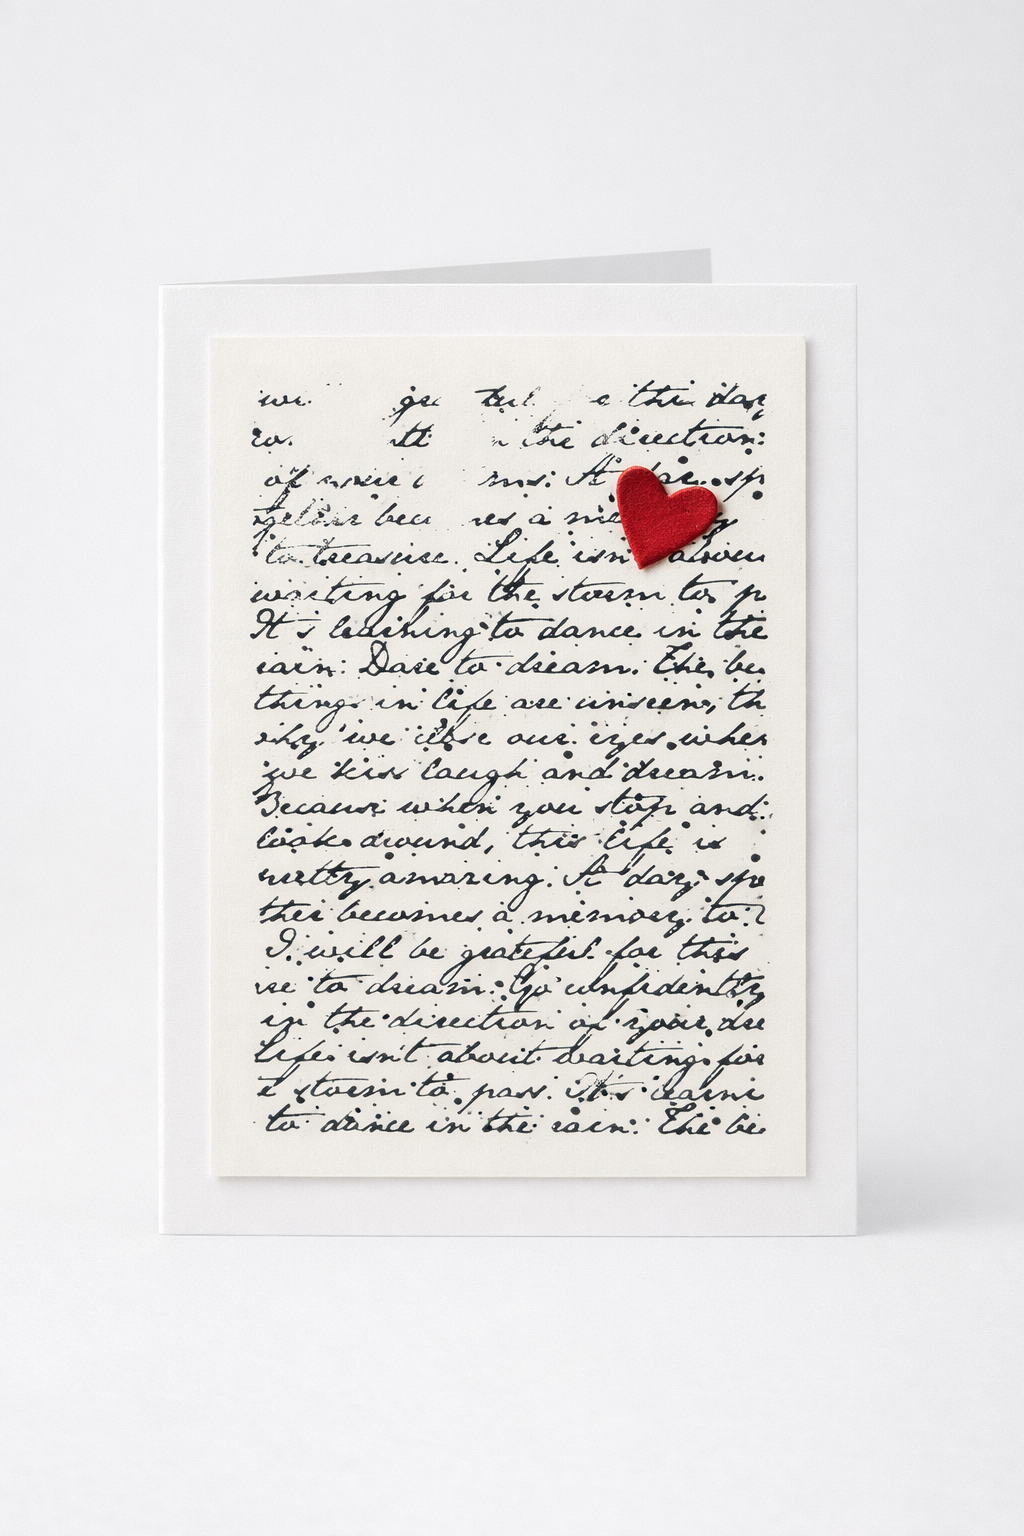 the day
the direction
of
a
to treasure. Life isn
waiting for the storm to p
It's learning to dance in the
rain. Dare to dream. The be
things in life are unseen, th
why we close our eyes when
we kiss laugh and dream.
Because when you stop and
look around, this life is
pretty amazing. A day spe
ther becomes a memory to
I will be grateful for this
re to dream. Go confidently
in the direction of your dre
Life isn't about waiting for
e storm to pass. It's learni
to dance in the rain. The be